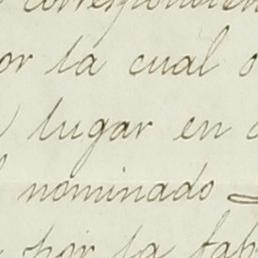 correspondien
or la cual o
lugar en
nominado
por la fab